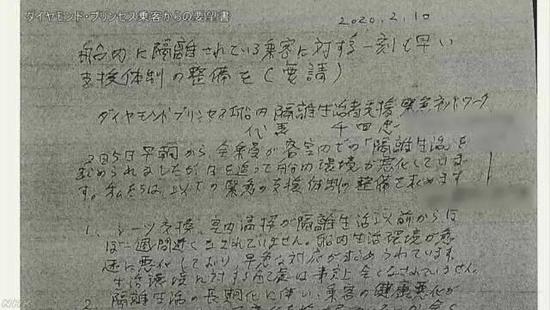 ダイヤモンド・プリンセス乗客からの要望書
2020.2.10
船内に隔離されている乗客に対する一刻も早い
支援体制の整備を(要請)
ダイヤモンドプリンセス船内隔離生活者支援緊急ネットワーク
代表 千田忠
2月5日早朝から、全乗客が客室内での「隔離生活」を
はじめられましたが日を追って船内環境が悪化していま
す。私たちは、以下の緊急の支援体制の整備を求めます
1、シーツ交換、室内清掃が隔離生活以前からほ
ぼ一週間近くなされていません。船内生活環境が急
速に悪化しており、早急な対応が求められています。
生活環境に対する は事実上全くなされていません。
隔離生活の長期化に伴い、乗客の健康悪化が
2
NHK